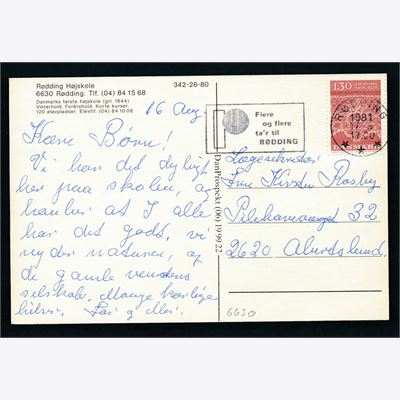 Rødding Højskole
6630 Rødding. Tlf. (04) 84 15 68
Danmarks første højskole (gri. 1844)
Vinterhold. Forårshold. Korte kurser.
120 elevpladser. Elevtlf. (04) 84 10 08
342-26-80
16 Aug.
Kære Børn!
Vi har det dejligt
her paa skolen, og
haaber at I alle
har det godt, vi
nyder naturen, og
de gamle venners
selskab. Mange kærlige
hilsner. Far og Mor.
DanProspekt (06) 19 99 22
Flere
og flere
ta'r til
RØDDING
RØDDING
1981
17.00
130
DANMARK
Fru Kirsten
32
2620 Albertslund.
6630